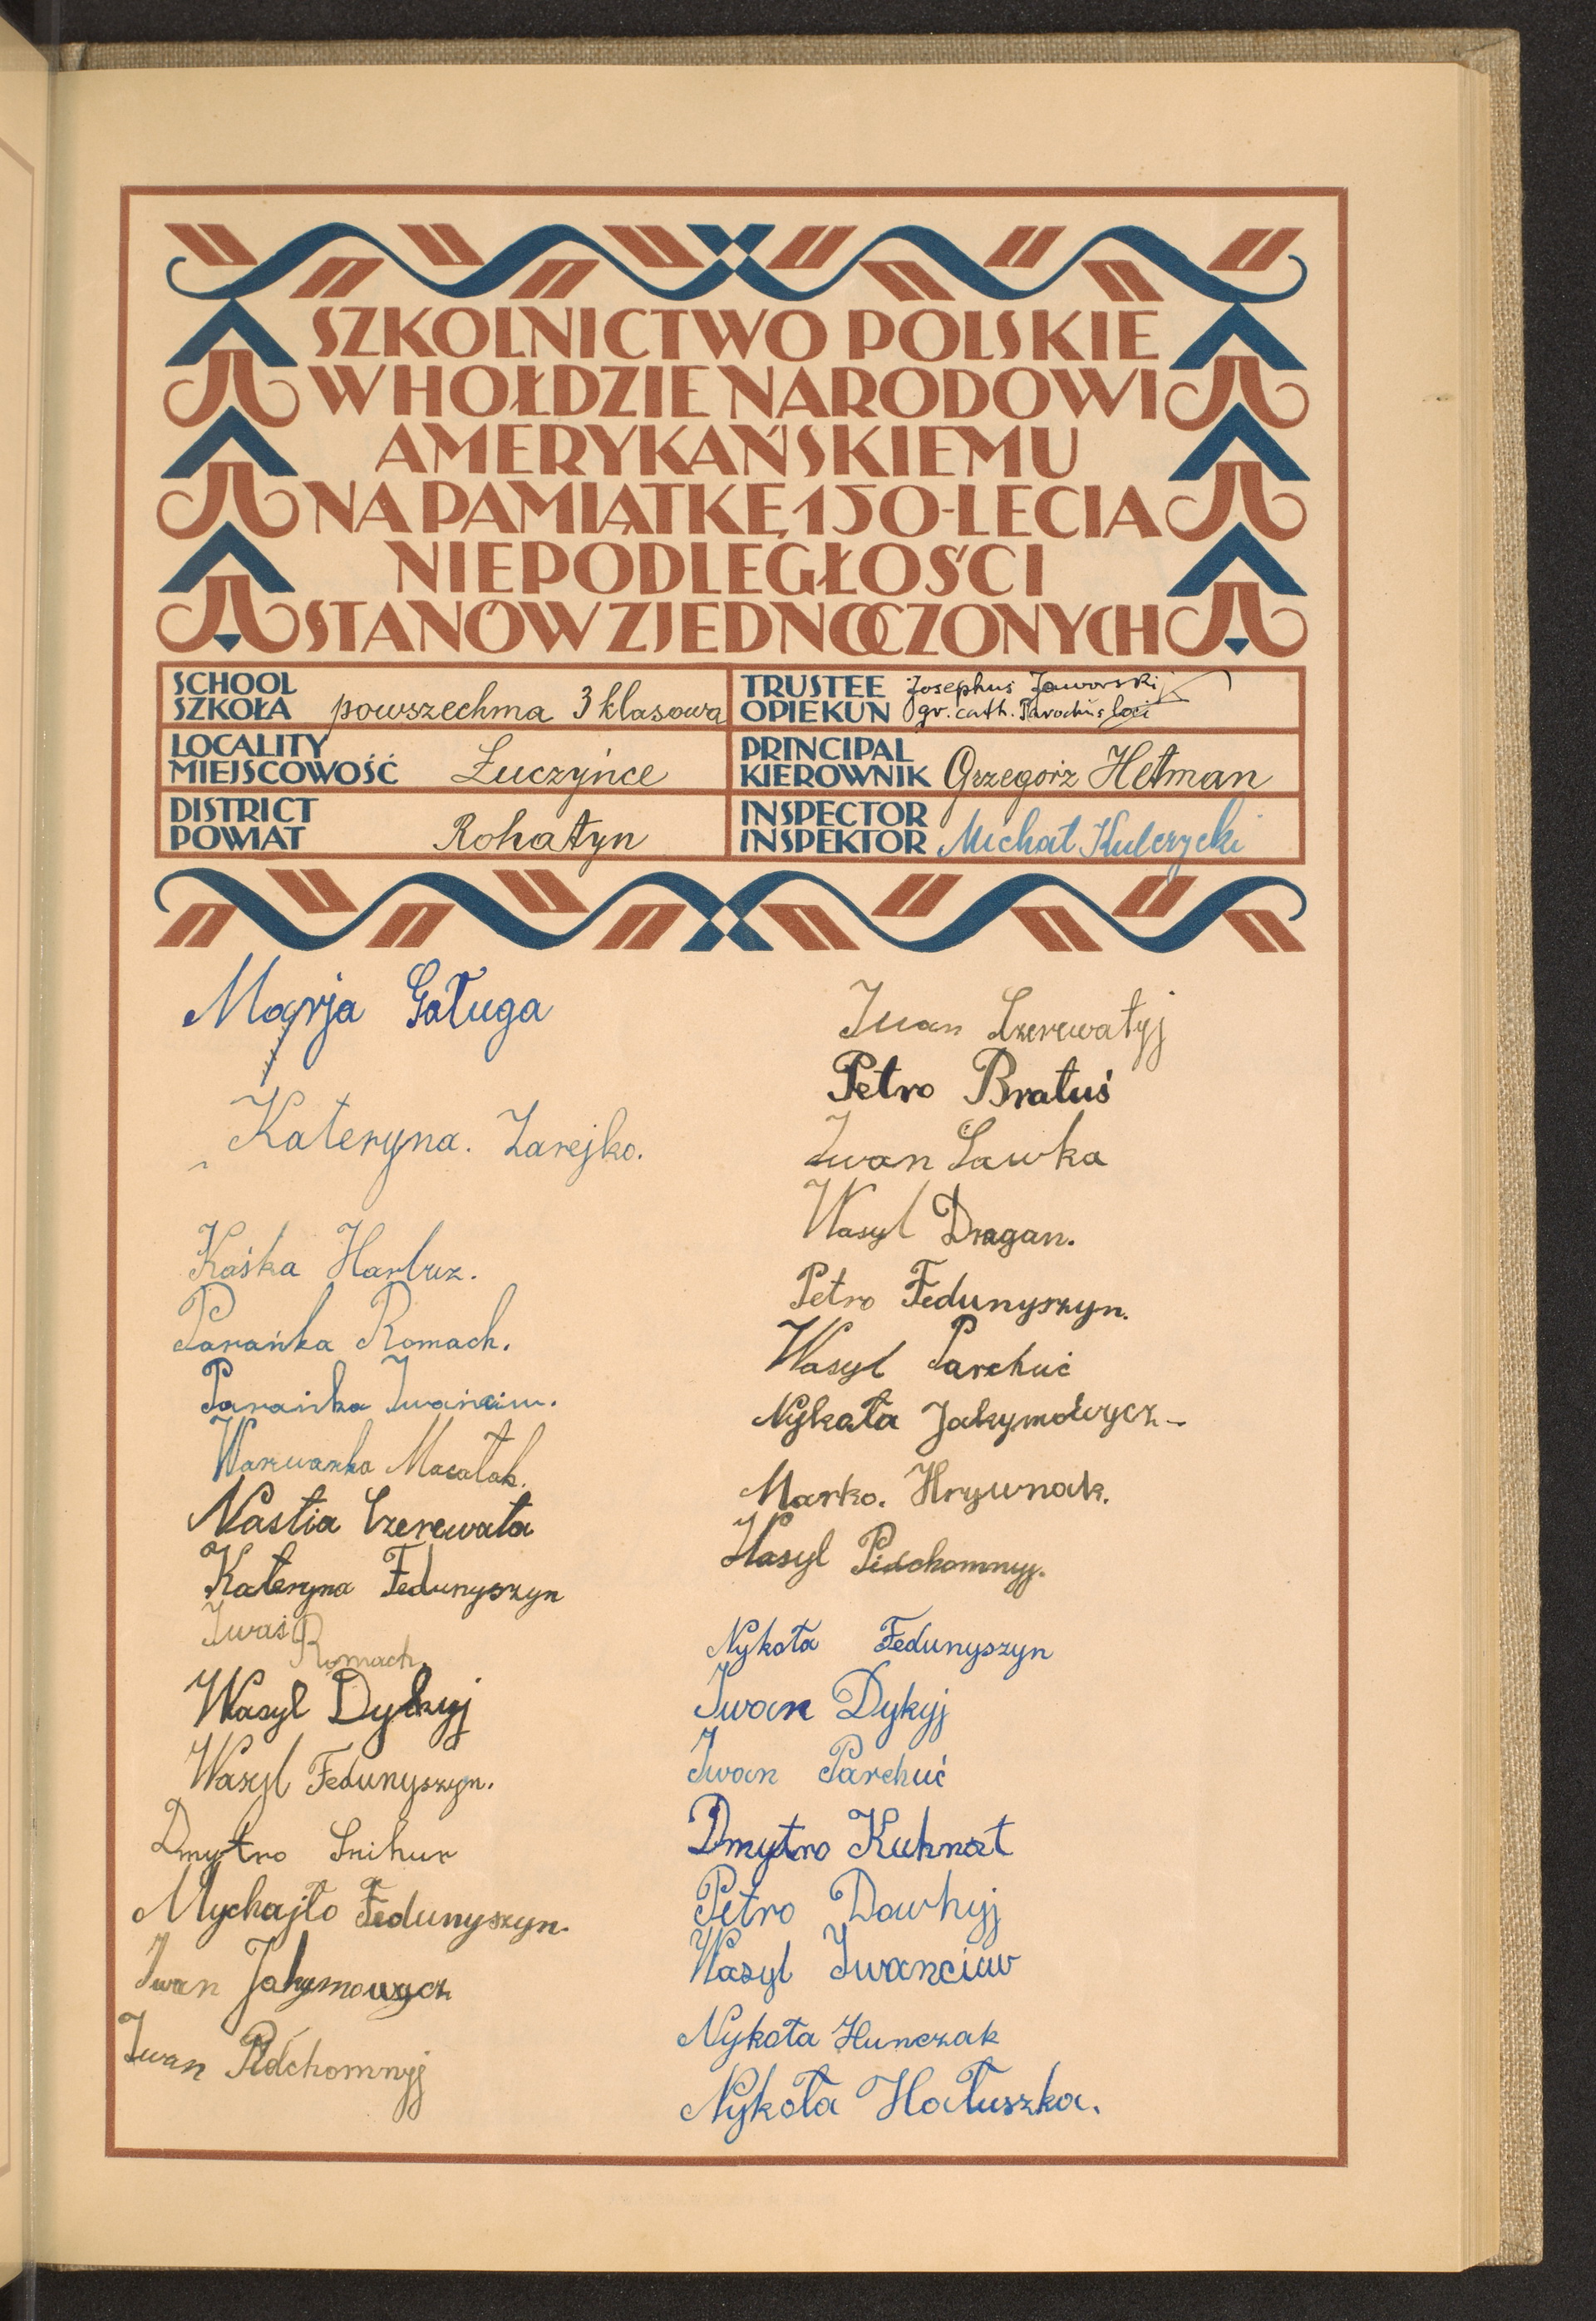 SZKOLNICTWO POLSKIE
W HOŁDZIE NARODOWI
AMERYKAŃSKIEMU
NA PAMIĄTKĘ 150-LECIA
NIEPODLEGŁOŚCI
STANÓW ZJEDNOCZONYCH
SCHOOL
SZKOŁA powszechna 3 klasowa
TRUSTEE Josephus Jaworski
OPIEKUN gr. cath. Parochus loci
LOCALITY
MIEJSCOWOŚĆ Łuczyńce
PRINCIPAL
KIEROWNIK Grzegorz Hetman
DISTRICT
POWIAT Rohatyn
INSPECTOR
INSPEKTOR Michał Kulczycki
Marja Gaługa
Kateryna. Zarejko.
Kaśka Harbuz.
Parańka Romach.
Parańka Iwanciw.
Warwarka Macałak.
Nastia Czerewata
Kateryna Fedunyszyn
Iwaś Romach.
Wasyl Dykyj
Wasyl Fedunyszyn.
Dmytro Snihur
Mychajło Fedunyszyn.
Iwan Jakymowycz
Iwan Pidchomnyj
Iwan Czerewatyj
Petro Bratuś
Iwan Sawka
Wasyl Dragan.
Petro Fedunyszyn.
Wasyl Parchuć
Nykoła Jakymowycz
Marko. Hrywnak.
Wasyl Pidchomnyj.
Nykoła Fedunyszyn
Iwan Dykyj
Iwan Parchuć
Dmytro Kuhnat
Petro Dowhyj
Wasyl Iwanciw
Nykoła Hunczak
Nykoła Hałuszka.